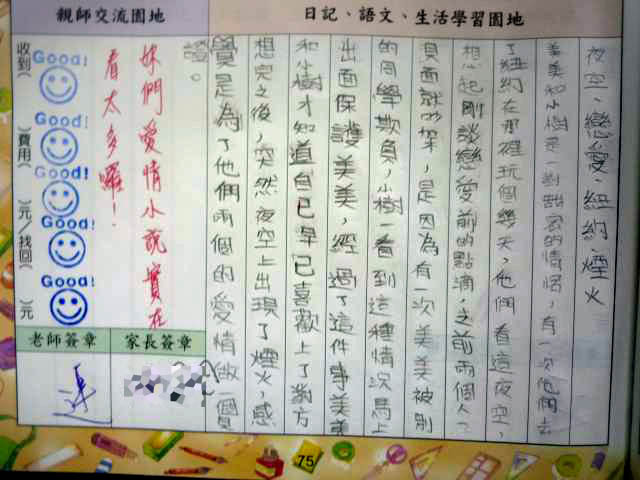 親師交流園地
日記、語文、生活學習園地
夜空、戀愛、紐約、煙火
美美和小樹是一對甜蜜的情侶，有一次他們去
了紐約在那裡玩個幾天，他們看這夜空，
想起剛談戀愛前的點滴，之前兩個人
的同學欺負，小樹一看到這種情況馬上
出面保護美美，經過了這件事美美
和小樹才知道自己早已喜歡上了對方
想完之後，突然夜空上出現了煙火，感
覺是為了他們兩個的愛情做一個
證。
妹們愛情小說實在
看太多囉！
收到( )費用( )元/找回( )元
Good!
Good!
Good!
Good!
Good!
老師簽章
家長簽章
75